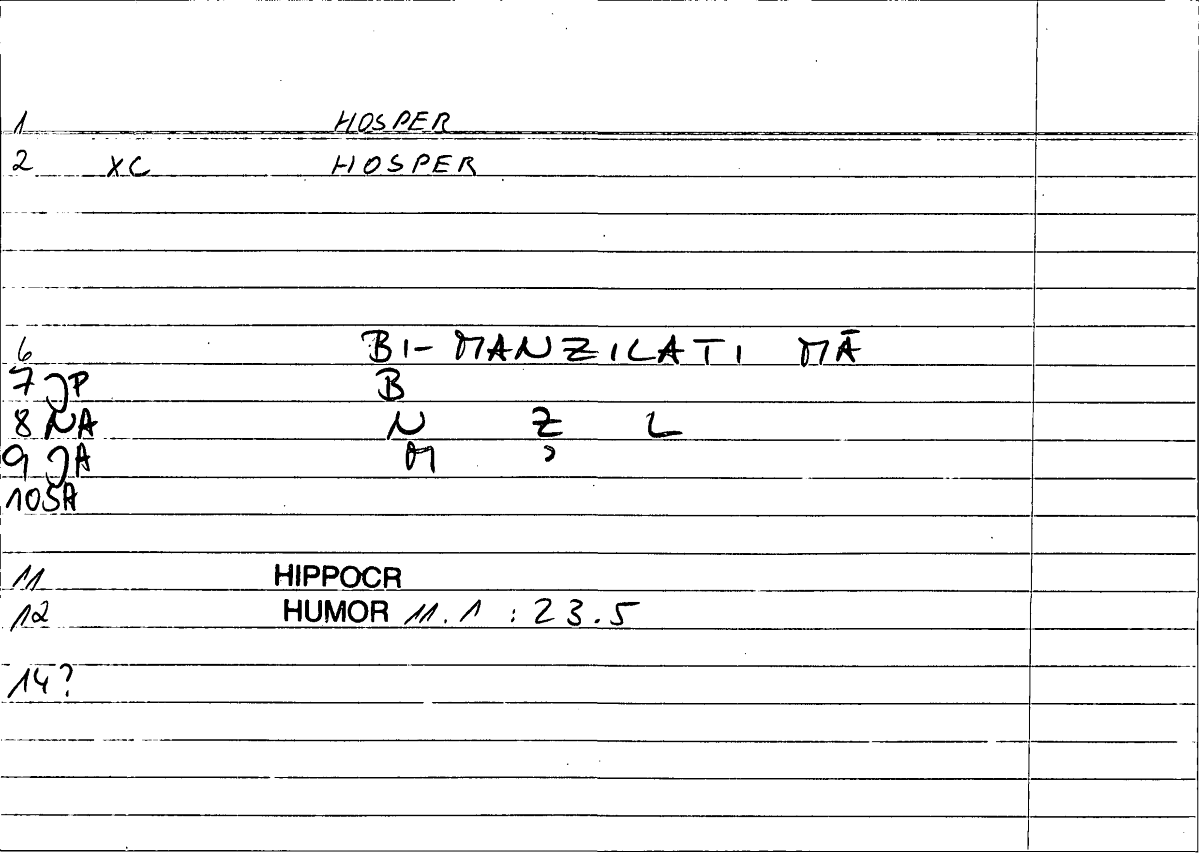 1 HOSPER
2 XC HOSPER
6 BI-MANZILATI MĀ
7 JP B
8 NA N Z L
9 JA M ʾ
10 SA
11 HIPPOCR
12 HUMOR 11.1 : 23.5
14?